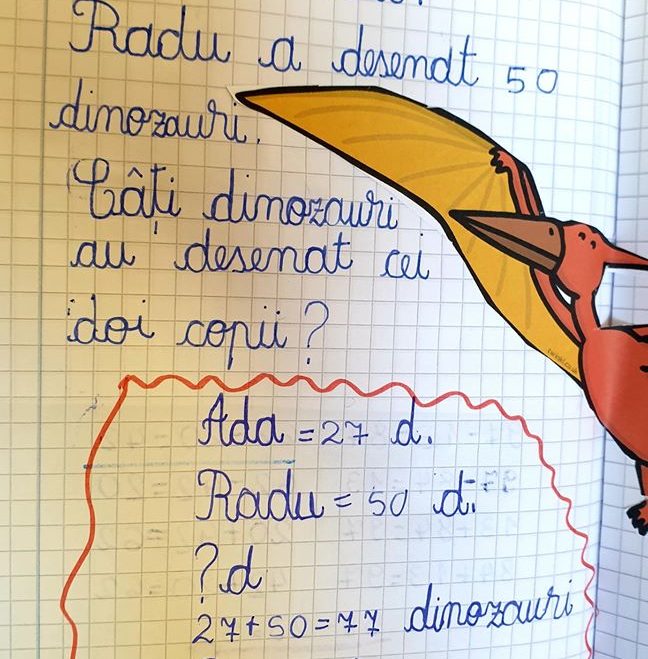 Radu a desenat 50
dinozauri.
Câți dinozauri
au desenat cei
doi copii?
Ada = 27 d.
Radu = 50 d.
? d
27+50=77 dinozauri